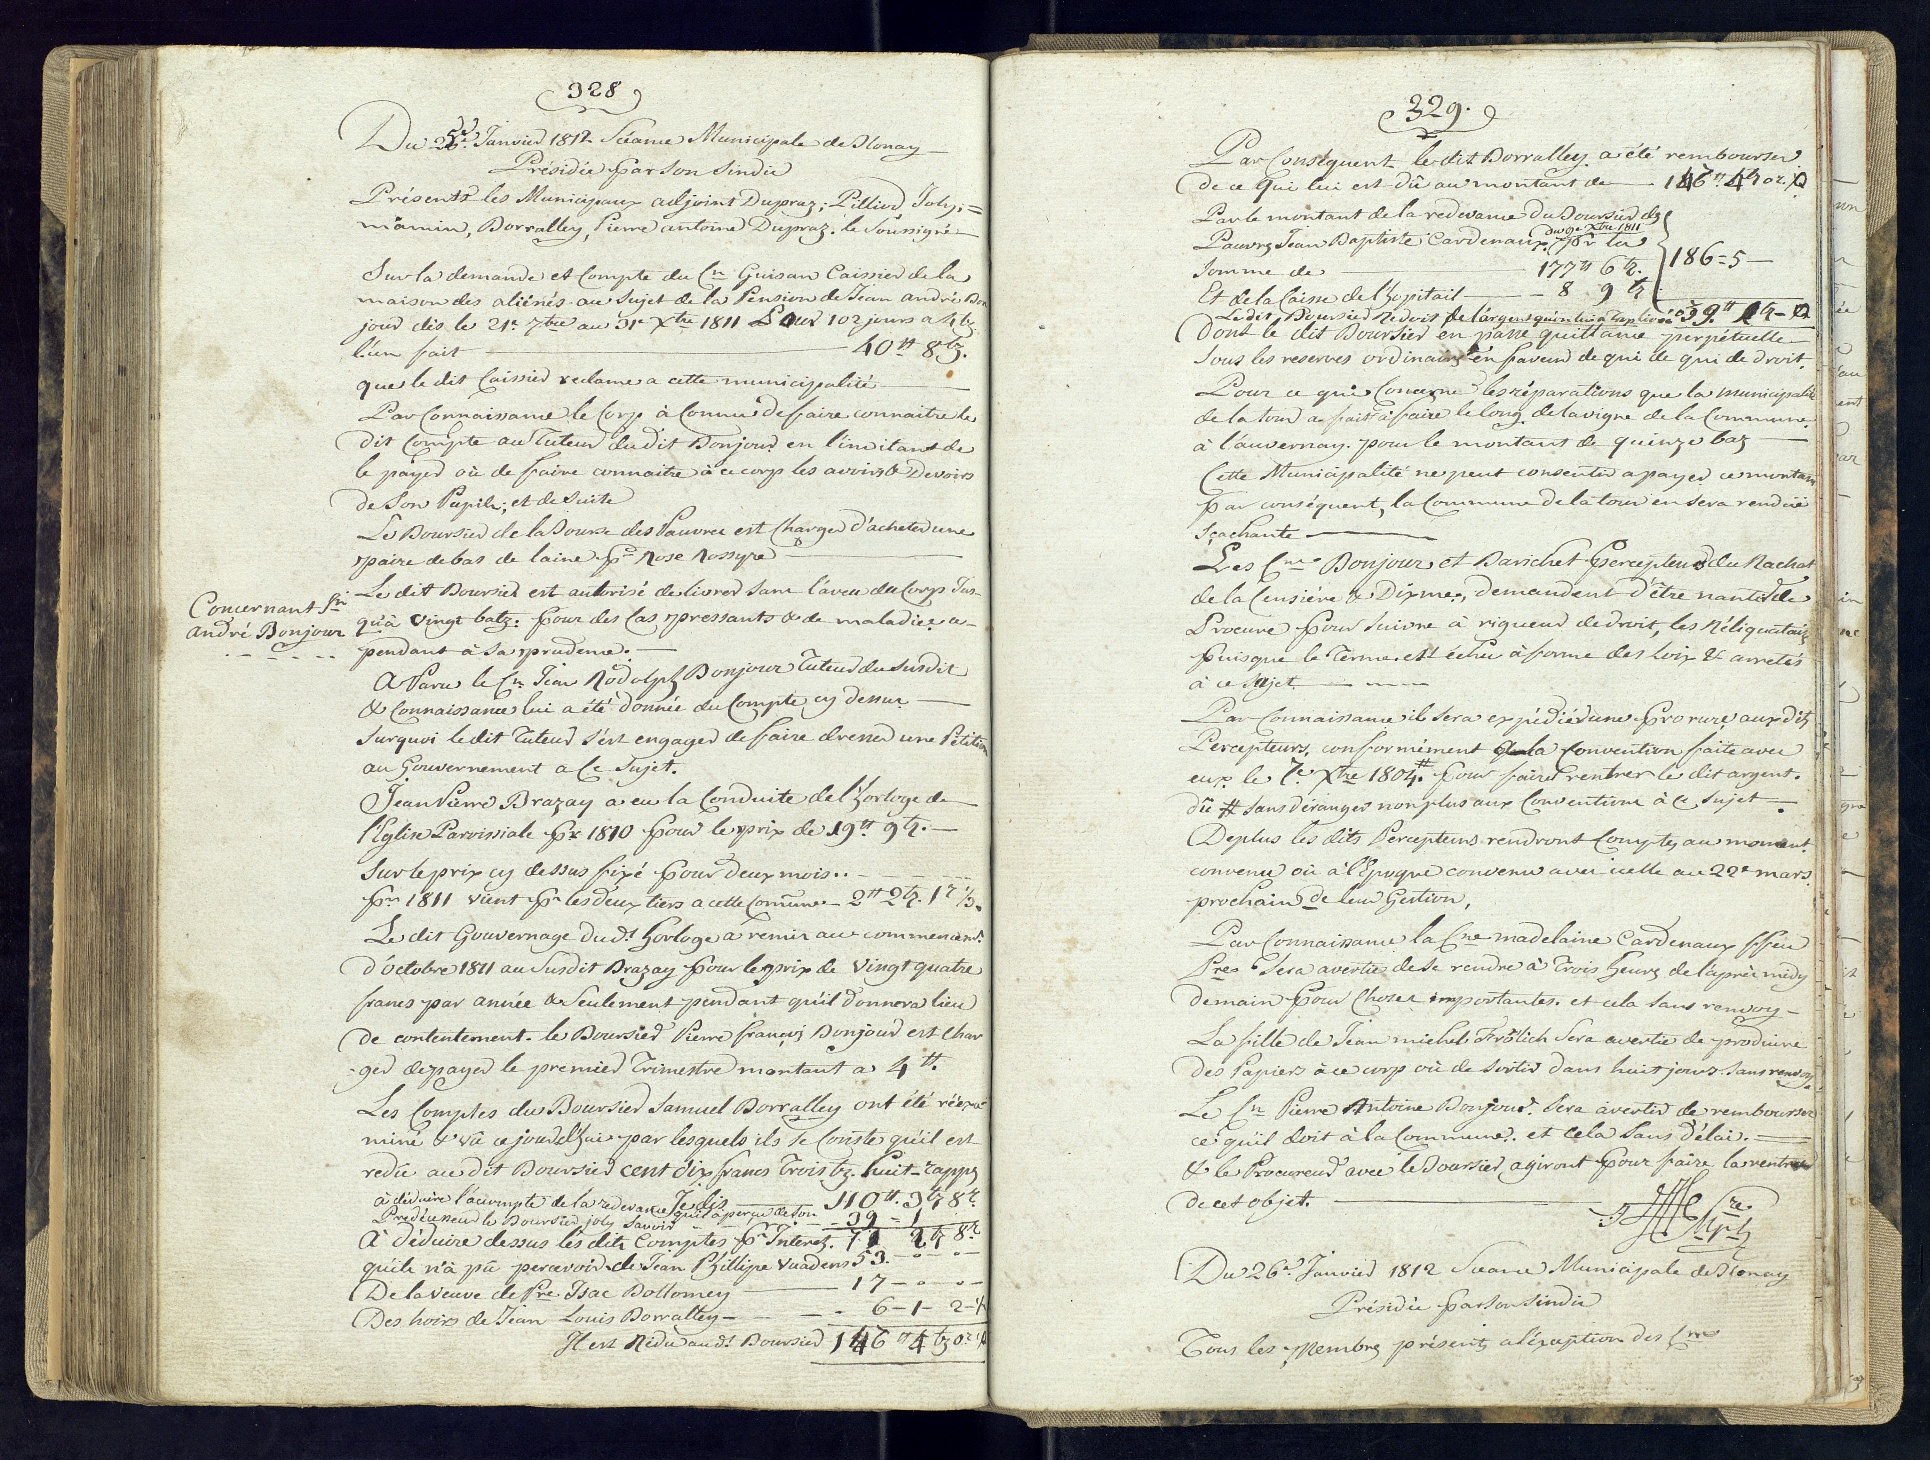 328
Du 25e Janvier 1812 Séance Municipale de Blonay
Présidée par Son Sindic
Présents les Municipaux adjoint Dupraz; Pilliod Joly;=
mâmin, Borralley, Pierre antoine Dupraz. le Soussigné
Sur la demande et Compte du Cn Guisan Caissier de la
maison des aliénés au Sujet de la Pension de Jean andré Bon
jour dès le 21e 7bre au 31e Xbre 1811 Pour 102 jours a 4 bz
l'un fait 40 tt 8 bz.
que le dit Caissier reclame a cette municipalité
Par Connaissance le Corp à Connu de faire connaitre le
dit Compte au Tuteur du dit Bonjour en l'invitant de
le payer où de faire connaitre à ce corp les avoirs & Devoirs
de Son Pupile; et de Suite
Le Boursier de la Bourse des Pauvres est Charger d'acheter une
paire de bas de laine pr Rose Rossyre
Concernant Jn
andré Bonjour
Le dit Boursier est autorisé de livrer sans l'aveu du Corp Jus-
qu'à vingt batz: pour des Cas pressants & de maladies, a-
pendant à Sa prudence.
A Paru le Cn Jean Rodolph Bonjour Tuteur du Susdit
& Connaissance lui a été donnée du Compte cy dessus
Surquoi le dit Tuteur s'est engager de faire dresser une Pétition
au Gouvernement a Ce Sujet.
Jean Pierre Brazay a eu la Conduite de l'horloge de
l'Eglise Paroissiale pr 1810 pour le prix de 19 tt 9 bz.
Sur le prix cy dessus fixé pour deux mois..
pr 1811 vient pr les deux tiers a cette Comune 2 tt 2 bz. 1 r 1/3.
Le dit Gouvernage du dt horloge a remis au commencemt.
d'octobre 1811 au Susdit Brazay pour le prix de vingt quatre
francs par année & Seulement pendant qu'il donnera lieu
de contentement. le Boursier Pierre françois Bonjour est Char
ger de payer le premier Trimestre montant a 4 tt.
Les Comptes du Boursier Samuel Borralley ont été réexa-
miné & vû ce jourd'hui par lesquels ils Se Conste qu'il est
redû au dit Boursier cent dix francs Trois bz. huit rappes
Je dis 110 tt. 3 bz 8 r
à déduire l'acompte de la redevance qu'il a perçu de son
Prédécesseur le Boursier joly Savoir 39 - 1
A déduire dessus les dits Comptes pr Interez. 71 2 bz 8 r
qu'ils n'à pû percevoir de Jean Phillipe Vuadens 53.
De la Veuve de Pre Isac Bottomey 17
Des hoirs de Jean Louis Borralley 6-1-2-1/2
Il est Redû au dt Boursier 146 tt 4 bz 0 r 1/2
329.
Par Conséquent le dit Borralley a été rembourser
de ce qui lui est dû au montant de 146 tt 4 bz 0 r. 1/2
Par le montant de la redevance du Boursier des
du 9e Xbre 1811
Pauvres Jean Baptiste Cardenaux, pr la
Somme de 177 tt 6 bz. 186=5
Et de la Caisse de l'hopitail 8 9 bz
Ledit Boursier Redoit de l'argent qu'on lui a
Dont le dit Boursier en passe quittance perpétuelle
Sous les reserves ordinaires en faveur de qui de qui de droit.
Pour ce qui Concerne les réparations que la municipalité
de la tour a fait à faire le long de la vigne de la Commune
à l'auvernay. pour le montant de quinze baz
Cette Municipalité ne peut consentir a payer ce montant
par conséquent, la Commune de la tour en Sera rendüe
Sçachante
Les Cns Bonjour et Barichet Percepteur du Rachat
de la Censière & Dixme, demandent d'être nantis de
Procure pour Suivre à rigueur de droit, les Réliquatais
puisque le Terme est échu à forme des Loix & arretés
à ce Sujet
Par Connaissance il Sera expédié une procure aux dits
Percepteurs conformément à la Convention faite avec
eux le 7e Xbre 1804 # pour faire rentrer le dit argent.
dû # Sans déranger non plus aux Conventions à Ce Sujet
Deplus les dits Percepteurs rendront Comptes au moment
convenu où à l'Epoque convenu avec icelle au 22e mars
prochain de leur Gestion,
Par Connaissance la Cne madelaine Cardenaux ffeu
Pre Sera avertie de Se rendre à Trois heures de l'après medy
demain pour Choses importantes. et cela Sans renvoy
La fille de Jean michel Frölich Sera avertie de produire
des Papiers à ce corp où de Sortir dans huit jours Sans renvoy
Le Cn Pierre Antoine Bonjour. Sera avertir de rembourser
ce qu'il doit à la Commune. et Cela Sans délai.
& le Procureur avec le Boursier, agiront pour faire la rentrée
de cet objet.
Du 26e Janvier 1812 Séance Municipale de Blonay
Présidée par Son Sindic
Tous les Membres présents a l'éxception des Cns